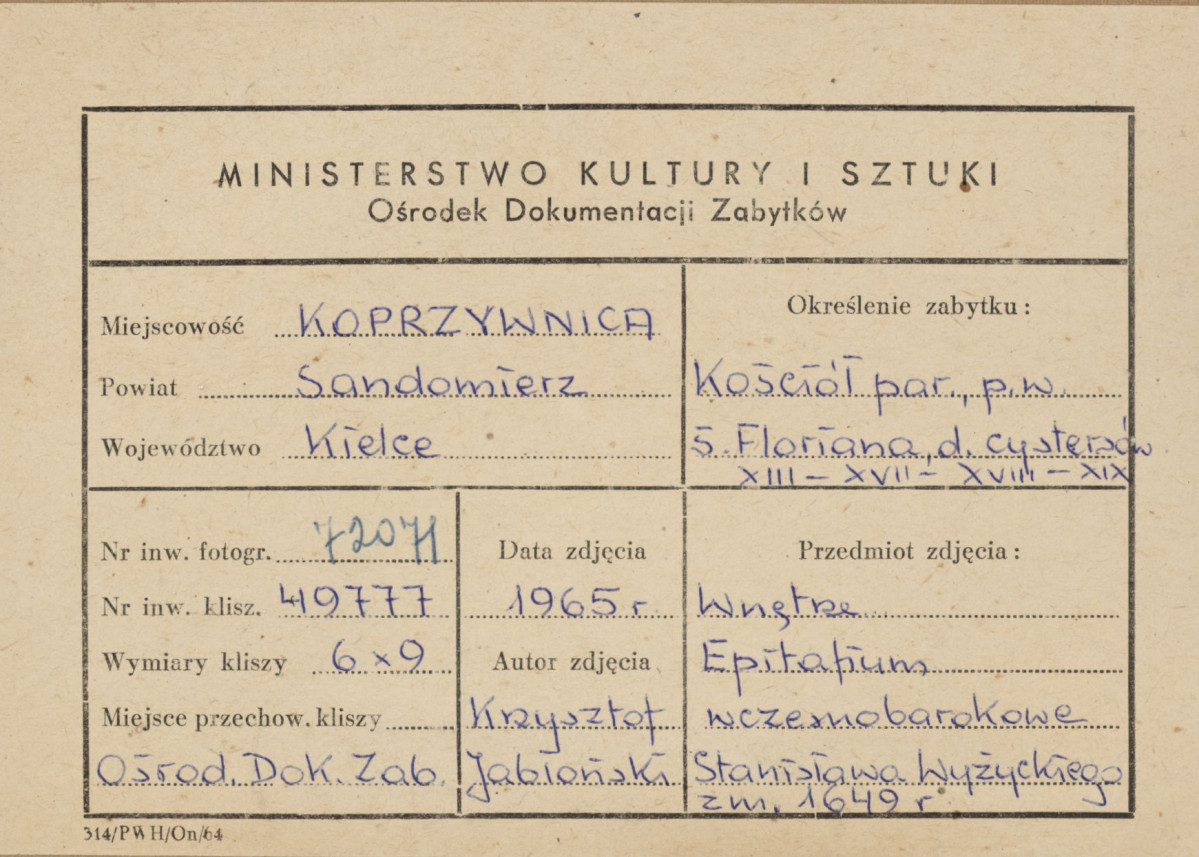 MINISTERSTWO KULTURY I SZTUKI
Ośrodek Dokumentacji Zabytków
Miejscowość KOPRZYWNICA
Powiat Sandomierz
Województwo Kielce
Określenie zabytku:
Kościół par., p.w.
Ś. Floriana, d. cystersów
XIII – XVII – XVIII – XIX
Nr inw. fotogr. 72071
Nr inw. klisz. 49777
Wymiary kliszy 6×9
Miejsce przechow. kliszy
Ośrod. Dok. Zab.
Data zdjęcia
1965 r
Autor zdjęcia
Krzysztof
Jabłoński
Przedmiot zdjęcia:
Wnętrze
Epitafium
wczesnobarokowe
Stanisława Wyżyckiego
zm. 1649 r
314/PWH/On/64